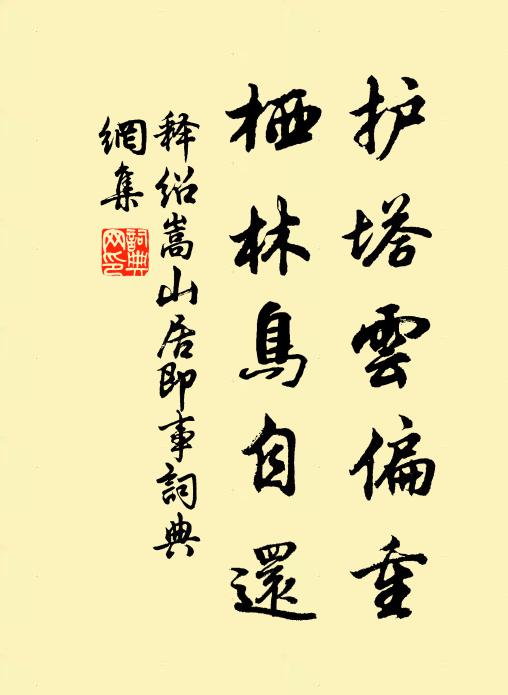 护塔雲偏重
栖林鳥自還
释绍嵩山居即事詞典
網集
詞典網印